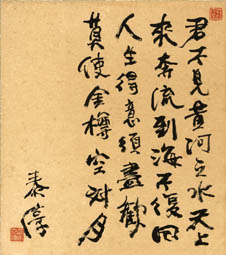 君不見黃河之水天上
來奔流到海不復回
人生得意須盡歡
莫使金樽空對月
泰淳